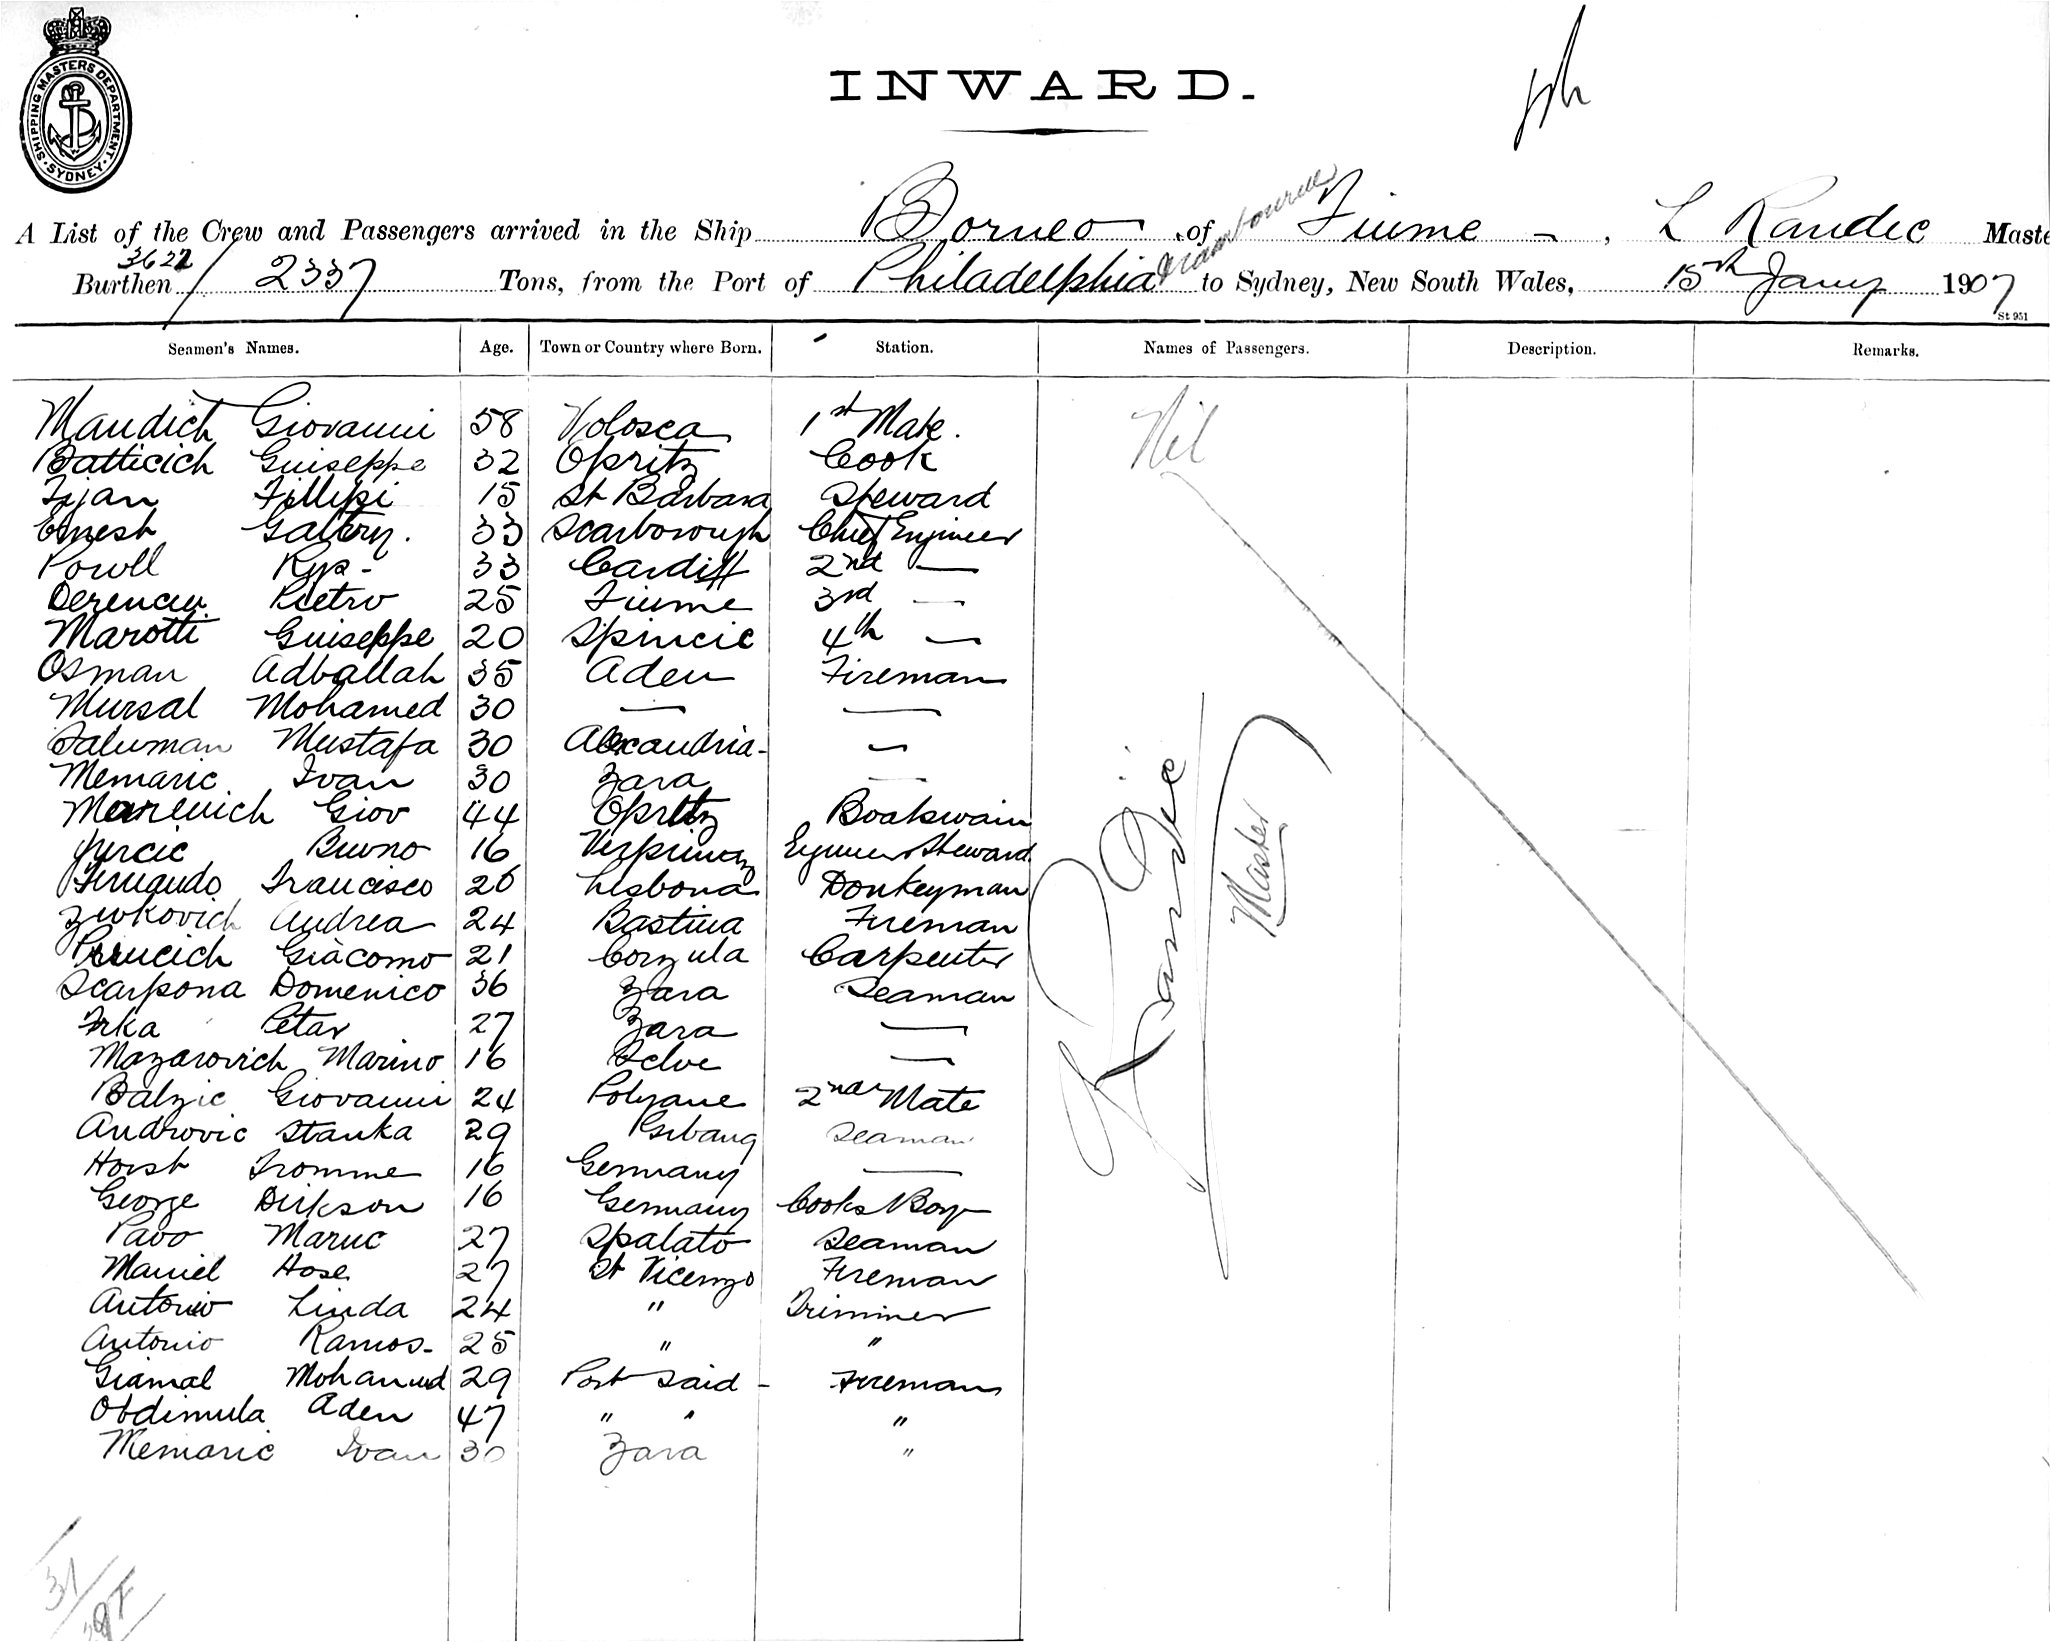 SHIPPING MASTERS DEPARTMENT
SYDNEY
INWARD.
A List of the Crew and Passengers arrived in the Ship Borneo of Fiume, L Randic Maste
3622
Burthen / 2337 Tons, from the Port of Philadelphia via Melbourne to Sydney, New South Wales, 15th Jany 1907
St 951
Seamen's Names. Age. Town or Country where Born. Station. Names of Passengers. Description. Remarks.
Mandich Giovanni 58 Volosca 1st Mate. Nil
Batticich Guiseppe 32 Opritz Cook
Fijan Fillipi 15 St Barbara Steward
Ernest Gallery. 33 Scarborough Chief Engineer
Powll Rys - 33 Cardiff 2nd —
Derencin Pietro 25 Fiume 3rd —
Marotti Guiseppe 20 Spincic 4th —
Osman Adballah 35 Aden Fireman
Mursal Mohamed 30 — —
Saluman Mustafa 30 Alexandria - —
Memaric Ivan 30 Zara —
Marenich Giov 44 Opritz Boatswain
Jurcic Bruno 16 Engineers Steward
Fernando Francisco 26 Lisbona Donkeyman
Zivkovich Andrea 24 Bastina Fireman
Prucich Giacomo 21 Corzula Carpenter
Scarpona Domenico 36 Zara Seaman
Frka Petar 27 Zara —
Mazarovich Marino 16 Selve —
Balzic Giovanni 24 Polyane 2nd Mate
Androvic Stanka 29 Seaman
Horst Fromme 16 Germany —
George Dirkson 16 Germany Cooks Boy
Pavo Maruc 27 Spalato Seaman
Maniel Hose 27 St Vicenzo Fireman
Antonio Linda 24 " Trimmer
Antonio Ramos - 25 " "
Giamal Mohamed 29 Port Said - Fireman
Obdimula Aden 47 " " "
Memaric Ivan 30 Zara "
L Randic
Master
31